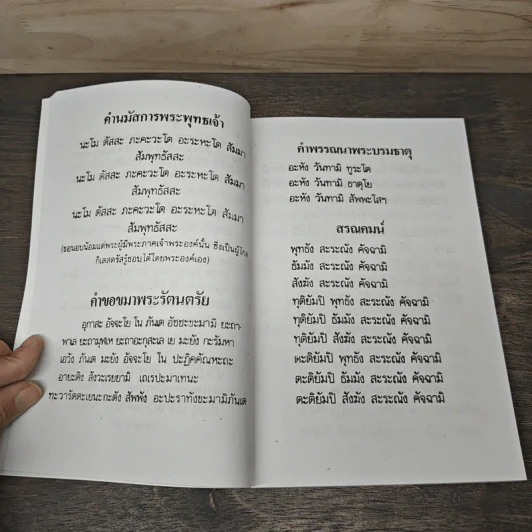 คำนมัสการพระพุทธเจ้า
นะโม ตัสสะ ภะคะวะโต อะระหะโต สัมมา
สัมพุทธัสสะ
นะโม ตัสสะ ภะคะวะโต อะระหะโต สัมมา
สัมพุทธัสสะ
นะโม ตัสสะ ภะคะวะโต อะระหะโต สัมมา
สัมพุทธัสสะ
(ขอนอบน้อมแด่พระผู้มีพระภาคเจ้าพระองค์นั้น ซึ่งเป็นผู้ไกล
กิเลสตรัสรู้ชอบได้โดยพระองค์เอง)
คำขอขมาพระรัตนตรัย
อุกาสะ อัจจะโย โน ภันเต อัชชะขะมามิ ยะถา
พาเล ยะถามุฬเห ยะถาอะกุสะเล เย มะยัง กะรัมหา
เอวัง ภันเต มะยัง อัจจะโย โน ปะฏิคคัณหะถะ
อายะติง สังวะเรยยามิ เถเรปะมาเทนะ
ทะวารัตตะเยนะกะตัง สัพพัง อะปะราทังขะมามิภันเต
คำพรรณนาพระบรมธาตุ
อะหัง วันทามิ ทูระโต
อะหัง วันทามิ ธาตุโย
อะหัง วันทามิ สัพพะโสฯ
สรณคมน์
พุทธัง สะระณัง คัจฉามิ
ธัมมัง สะระณัง คัจฉามิ
สังฆัง สะระณัง คัจฉามิ
ทุติยัมปิ พุทธัง สะระณัง คัจฉามิ
ทุติยัมปิ ธัมมัง สะระณัง คัจฉามิ
ทุติยัมปิ สังฆัง สะระณัง คัจฉามิ
ตะติยัมปิ พุทธัง สะระณัง คัจฉามิ
ตะติยัมปิ ธัมมัง สะระณัง คัจฉามิ
ตะติยัมปิ สังฆัง สะระณัง คัจฉามิ